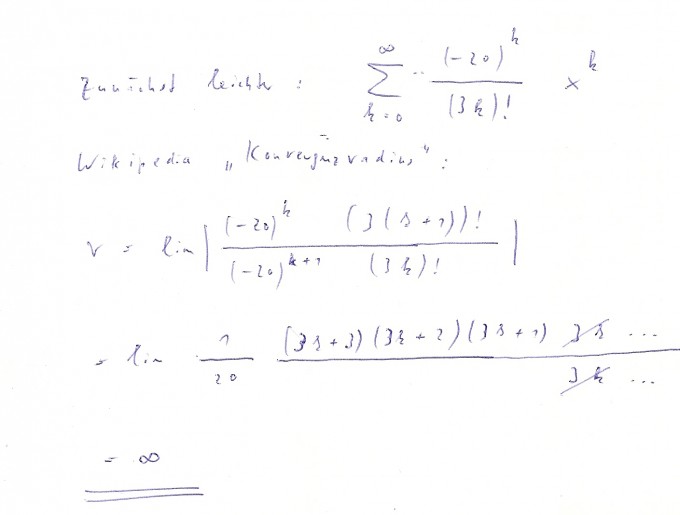 Zunächst leichter : ∞ ∑ k=0 (-20)^k / (3k)! x^k
Wikipedia „Konvergenzradius" :
r = lim | (-20)^k (3(k+1))! / (-20)^(k+1) (3k)! |
= lim 1/20 (3k+3)(3k+2)(3k+1) 3k ... / 3k ...
= ∞